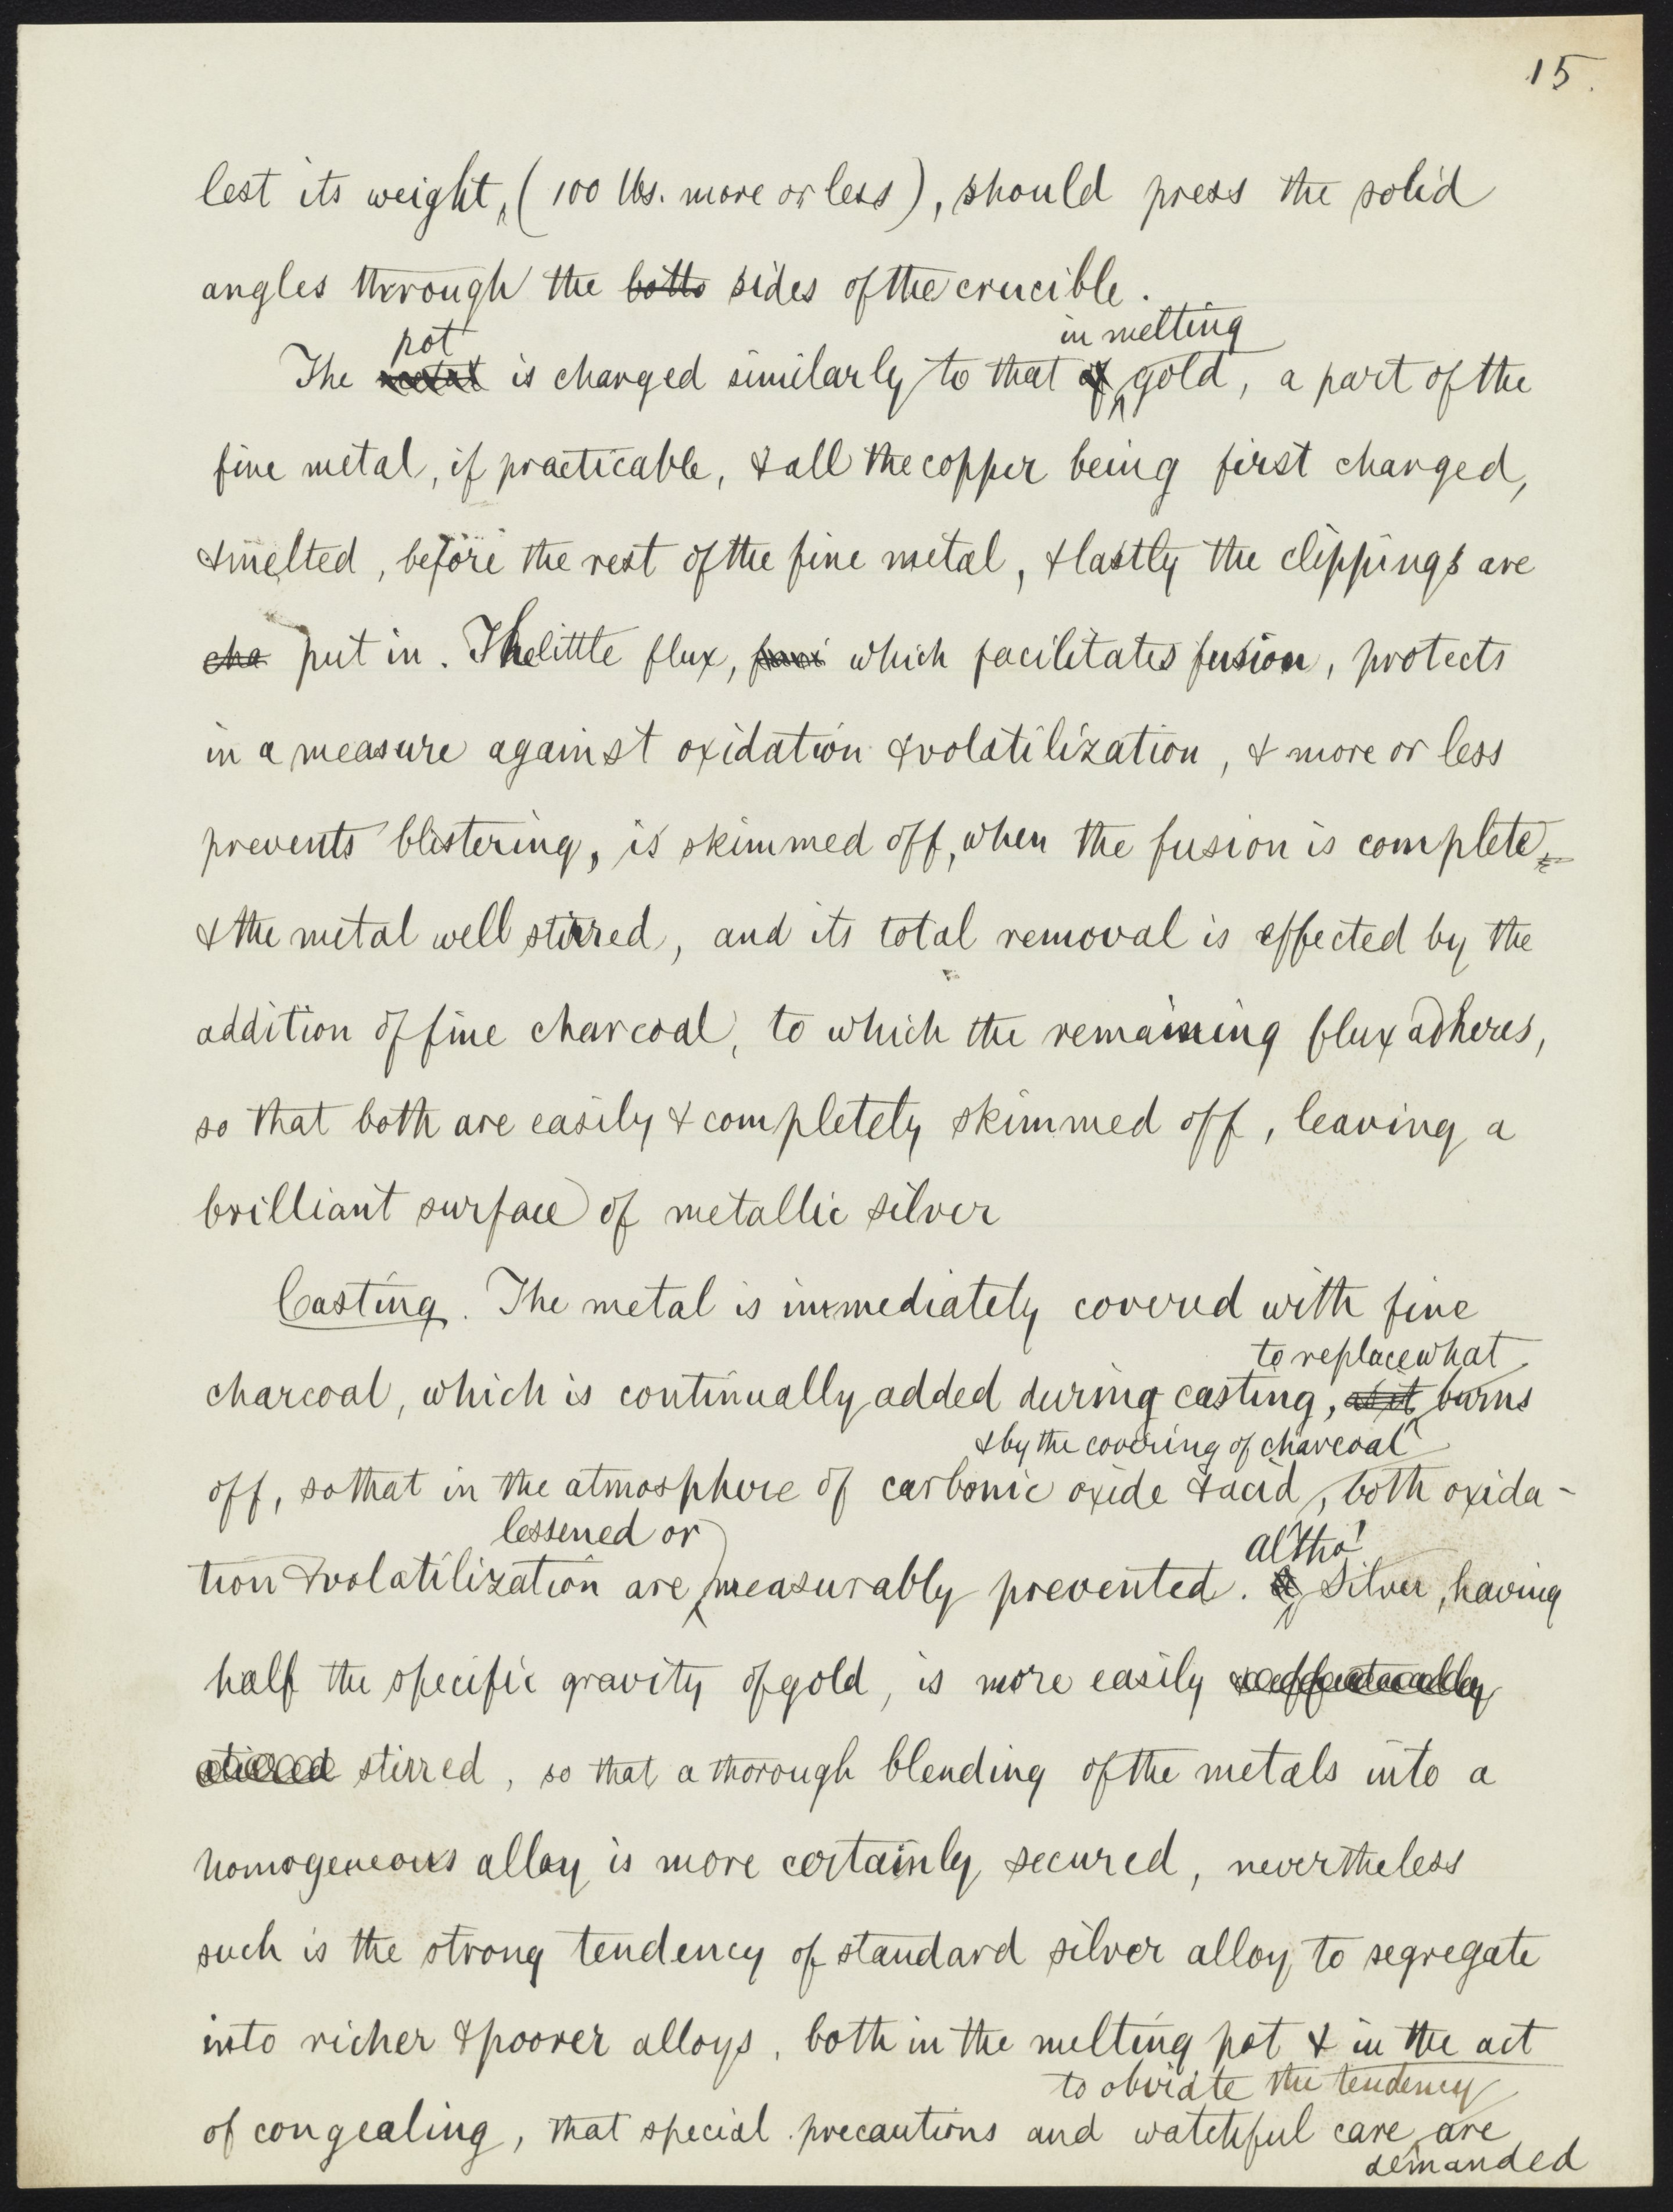 15.
lest its weight, (100 lbs. more or less), should press the solid
angles through the botto sides of the crucible.
pot
in melting
The metal is charged similarly to that of gold, a part of the
fine metal, if practicable, & all the copper being first charged,
& melted, before the rest of the fine metal, & lastly the clippings are
cha put in. The little flux, which facilitates fusion, protects
in a measure against oxidation & volatilization, & more or less
prevents blistering, is skimmed off, when the fusion is complete,
& the metal well stirred, and its total removal is effected by the
addition of fine charcoal, to which the remaining flux adheres,
so that both are easily & completely skimmed off, leaving a
brilliant surface of metallic silver
Casting. The metal is immediately covered with fine
to replace what
charcoal, which is continually added during casting, as it burns
& by the covering of charcoal
off, so that in the atmosphere of carbonic oxide & acid, both oxida-
lessened or
altho'
tion & volatilization are measurably prevented. Silver, having
half the specific gravity of gold, is more easily & effectually
stirred stirred, so that a thorough blending of the metals into a
homogeneous alloy is more certainly secured, nevertheless
such is the strong tendency of standard silver alloy to segregate
into richer & poorer alloys, both in the melting pot & in the act
to obviate the tendency
of congealing, that special precautions and watchful care are
demanded